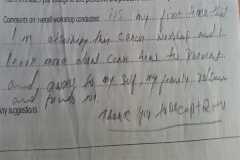 Comments on overall workshop conducted. its my first time that
I'm attending this cancer workshop and I
learn more about cancer how to prevent
and, aware to my self my family, relatives
and friends
ny suggestions
Thank you